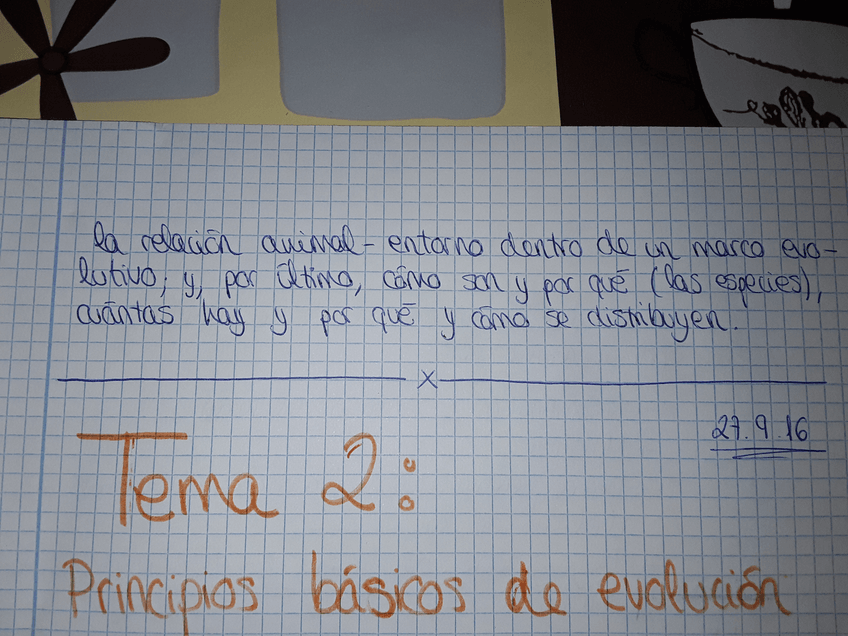 la relación animal-entorno dentro de un marco evo-
lutivo; y, por último, cómo son y por qué (las especies),
cuántas hay y por qué y cómo se distribuyen.
x
27.9.16
Tema 2:
Principios básicos de evolución